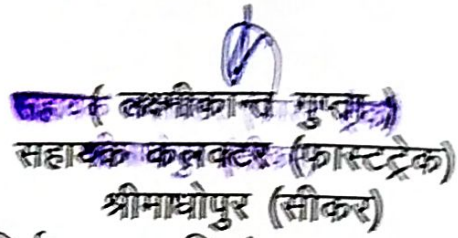 ( लक्ष्मीकान्त गुप्ता )
सहायक कलक्टर (फास्टट्रेक)
श्रीमाधोपुर (सीकर)